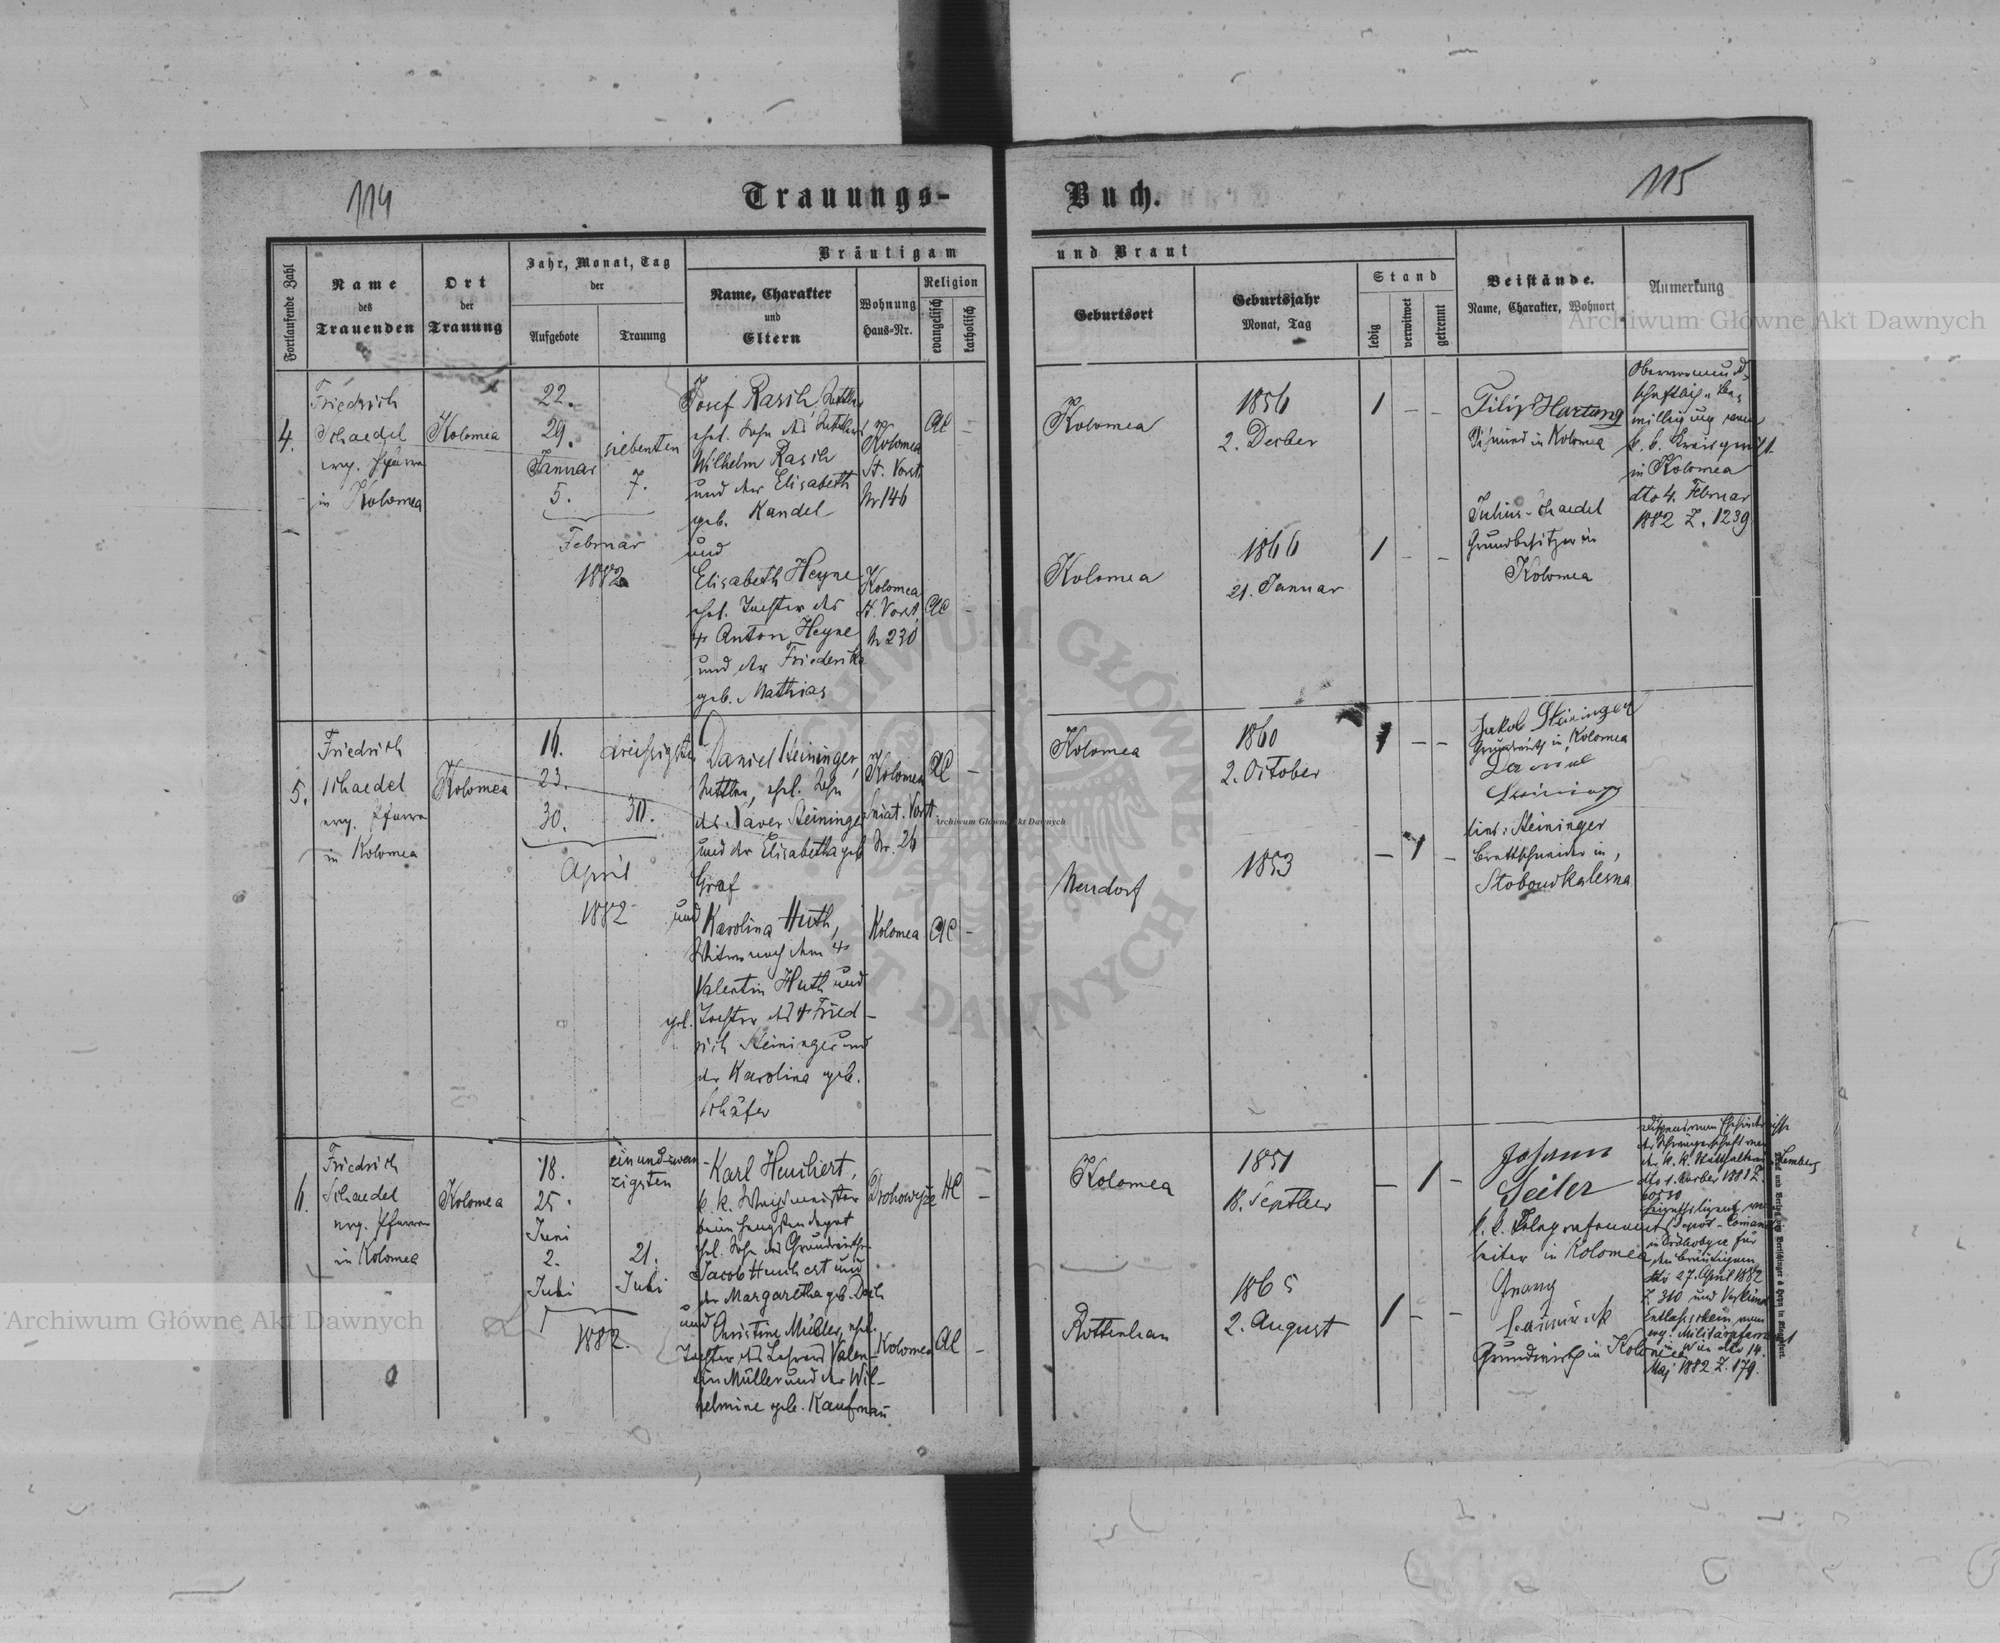 114
Trauungs-
Buch.
115
Fortlaufende Zahl
Name
des
Trauenden
Ort
der
Trauung
Jahr, Monat, Tag
der
Aufgebote
Trauung
Bräutigam
Name, Charakter
und
Eltern
Wohnung
Haus-Nr.
Religion
evangelisch
katholisch
und Braut
Geburtsort
Geburtsjahr
Monat, Tag
Stand
ledig
verwitwet
getrennt
Beistände.
Name, Charakter, Wohnort
Anmerkung
4.
Friedrich
Schaedel
evg. Pfarrer
in Kolomea
Kolomea
22.
29.
Januar
5.
Februar
1882
siebenten
7.
Josef Rasch,
ehel. Sohn des
Wilhelm Rasch
und der Elisabeth
geb. Kandel
und
Elisabeth Heyne
ehel. Tochter des
Anton Heyne
und der Friederika
geb. Mathias
Kolomea
St. Vorst.
Nr 146
AC
–
Kolomea
St. Vorst.
Nr 230
AC
–
Kolomea
1856
2. Decber
1 – –
Kolomea
1866
21. Januar
1 – –
Filip Hartung
in Kolomea
Julius Schaedel
Grundbesitzer in
Kolomea
Obervormund-
schaftliche Be-
willigung vom
k. k. Kreisgericht
in Kolomea
dto 4. Februar
1882 Z. 1239
5.
Friedrich
Schaedel
evg. Pfarrer
in Kolomea
Kolomea
16.
23.
30.
April
1882
dreissigsten
30.
Daniel Steininger,
ehel. Sohn
des Xaver Steininger
und der Elisabetha geb.
Graf
und Karolina Huth,
Witwe nach dem
Valentin Huth und
ehel. Tochter des Fried-
rich Steininger und
der Karolina geb.
Schäfer
Kolomea
Sniat. Vorst.
Nr. 26
AC
–
Kolomea
AC
–
Kolomea
1860
2. October
1 – –
Neudorf
1853
– 1 –
Jakob Steininger
Grundwirth in Kolomea
Daniel
Steininger
Steininger
Brettschneider in
6.
Friedrich
Schaedel
evg. Pfarrer
in Kolomea
Kolomea
18.
25.
Juni
2.
Juli
1882.
einundzwan-
zigsten
21.
Juli
Karl Heuchert,
k. k. Wachtmeister
beim Hengstendepot
ehel. Sohn des Grundwirths
Jacob Heuchert und
der Margaretha geb.
und
Christine Müller, ehel.
Tochter des Lehrers Valen-
tin Müller und der Wil-
helmine geb. Kaufmann
Drohowyze
HC
–
Kolomea
AC
–
Kolomea
1851
18. Septber
– 1 –
Rottenhan
1865
2. August
1 – –
Johann
Seiler
k. k. Telegrafenamts
Leiter in Kolomea
Franz
Grundwirth in Kolomea
der Schwägerschaft von
der k. k. Statthalterei Lemberg
in Drohobycz für
den Bräutigam
dto 27. April 1882
Z. 310 und Verkünd
Entlassschein vom
evg. Militärpfarramt
in Wien dto 14.
Mai 1882 Z. 179.
Archiwum Główne Akt Dawnych
Archiwum Główne Akt Dawnych
Archiwum Główne Akt Dawnych
ARCHIWUM GŁÓWNE · AKT DAWNYCH ·